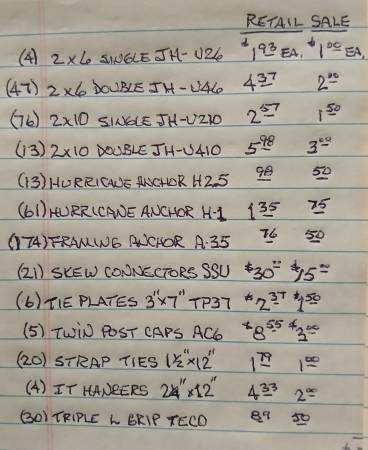 RETAIL SALE
(4) 2x6 SINGLE JH-U26 $1.93 EA. $1.00 EA.
(47) 2x6 DOUBLE JH-U46 4.37 2.00
(76) 2x10 SINGLE JH-U210 2.57 1.50
(13) 2x10 DOUBLE JH-U410 5.98 3.00
(13) HURRICANE ANCHOR H2.5 98 50
(61) HURRICANE ANCHOR H-1 1.35 75
(174) FRAMING ANCHOR A-35 76 50
(21) SKEW CONNECTORS SSU $30.00 $15.00
(6) TIE PLATES 3"x7" TP37 $2.37 $1.50
(5) TWIN POST CAPS AC6 $8.55 $3.00
(20) STRAP TIES 1½"x12" 1.79 1.00
(4) IT HANGERS 24"x12" 4.33 2.00
(30) TRIPLE L GRIP TECO 89 50